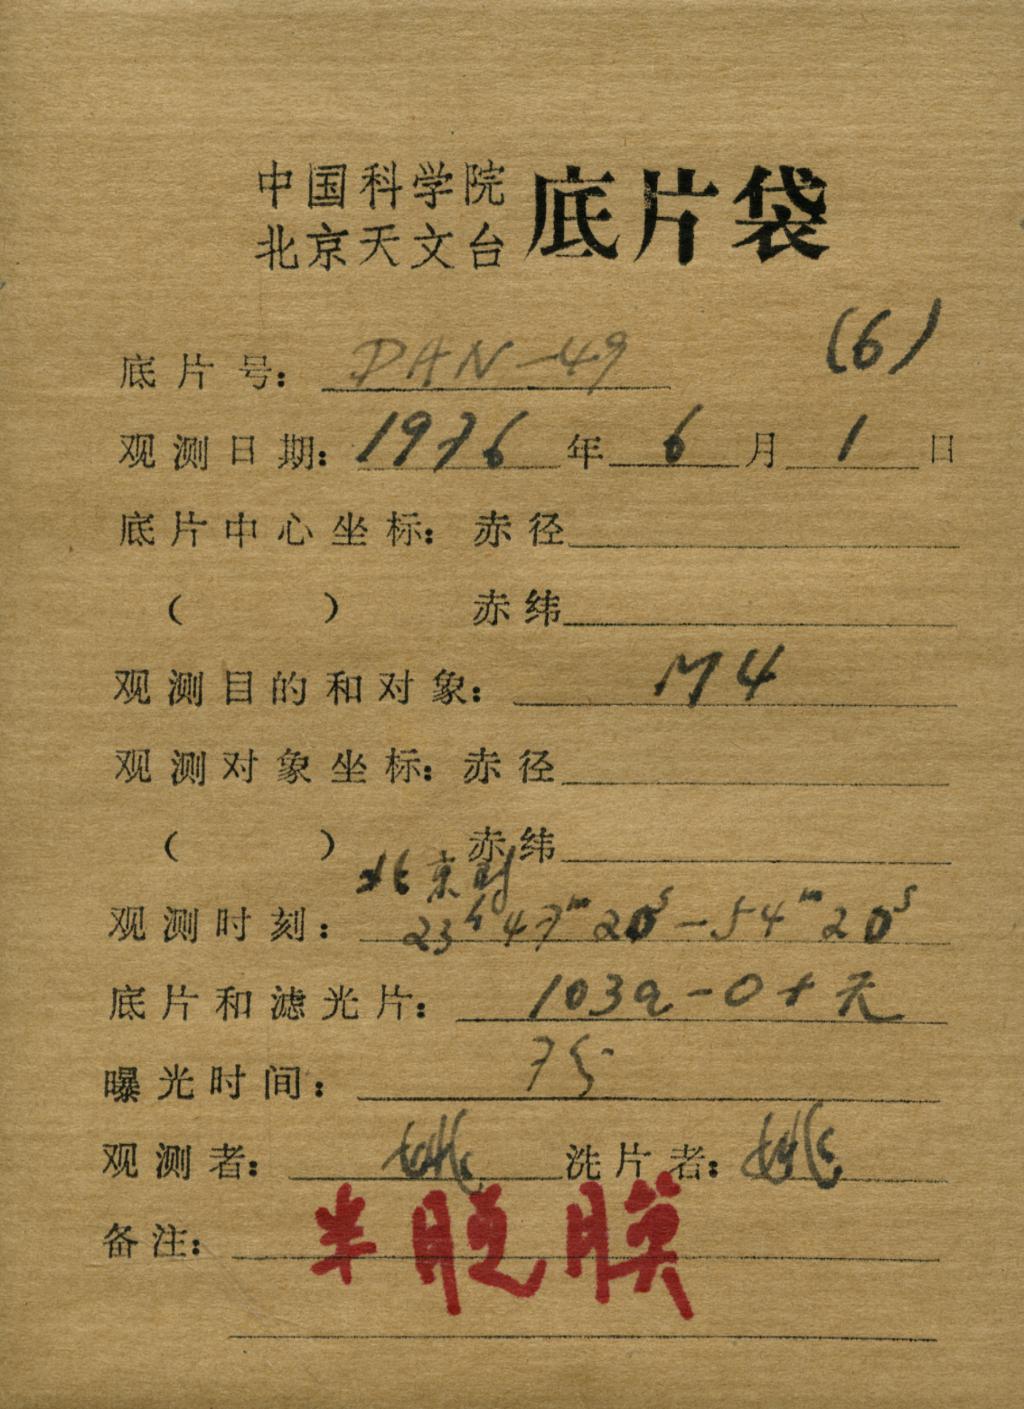 中国科学院
北京天文台 底片袋
(6)
底片号: DAN-49
观测日期: 1976 年 6 月 1 日
底片中心坐标: 赤径
( ) 赤纬
观测目的和对象: M4
观测对象坐标: 赤径
( ) 赤纬
北京时
观测时刻: 23h47m20s-54m20s
底片和滤光片: 103a-O+无
曝光时间: 7分
观测者: 姚 洗片者: 姚
备注: 半脱膜